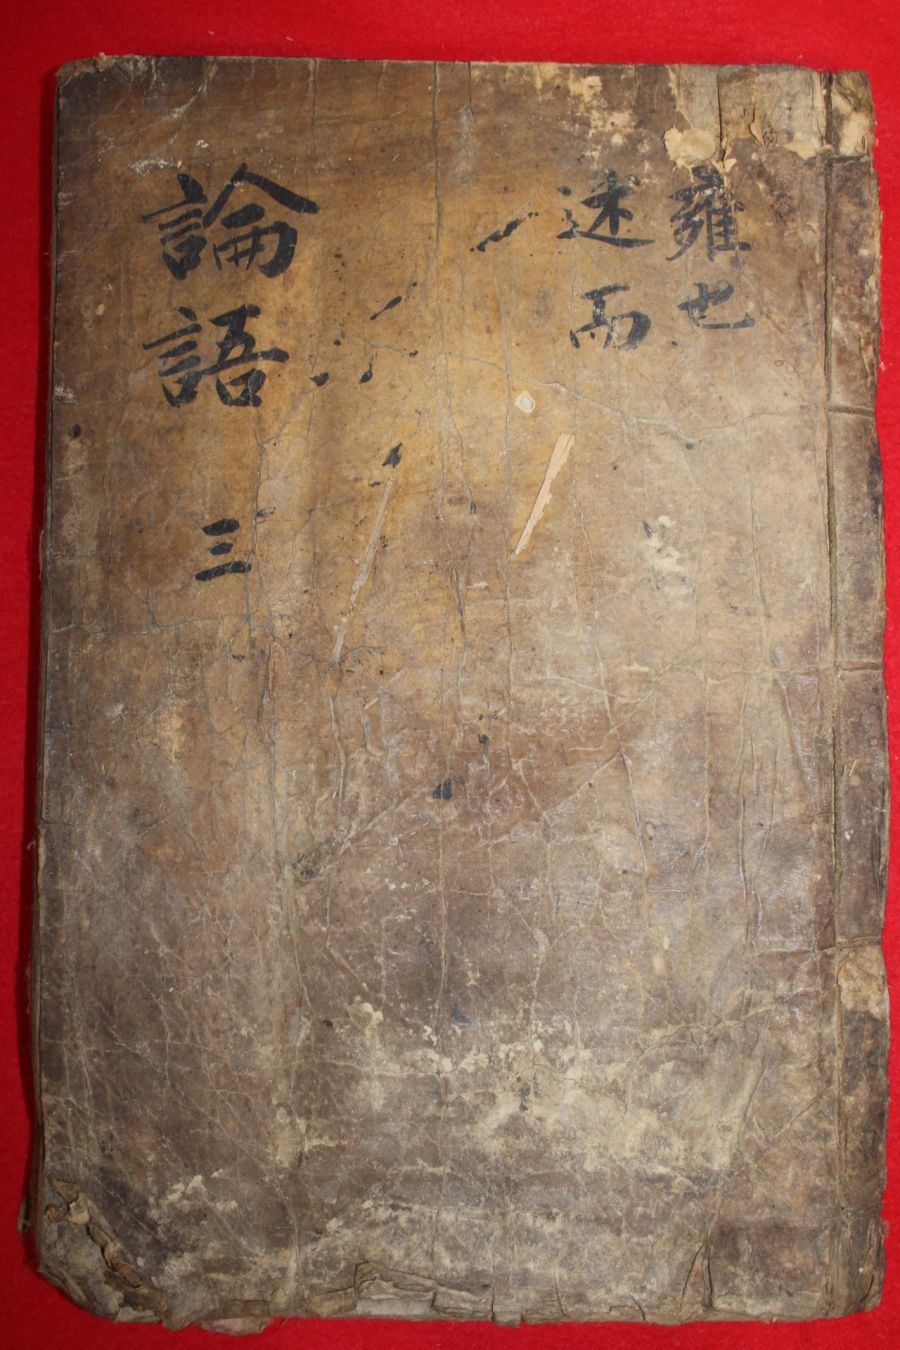 雍也
述而
論語 三